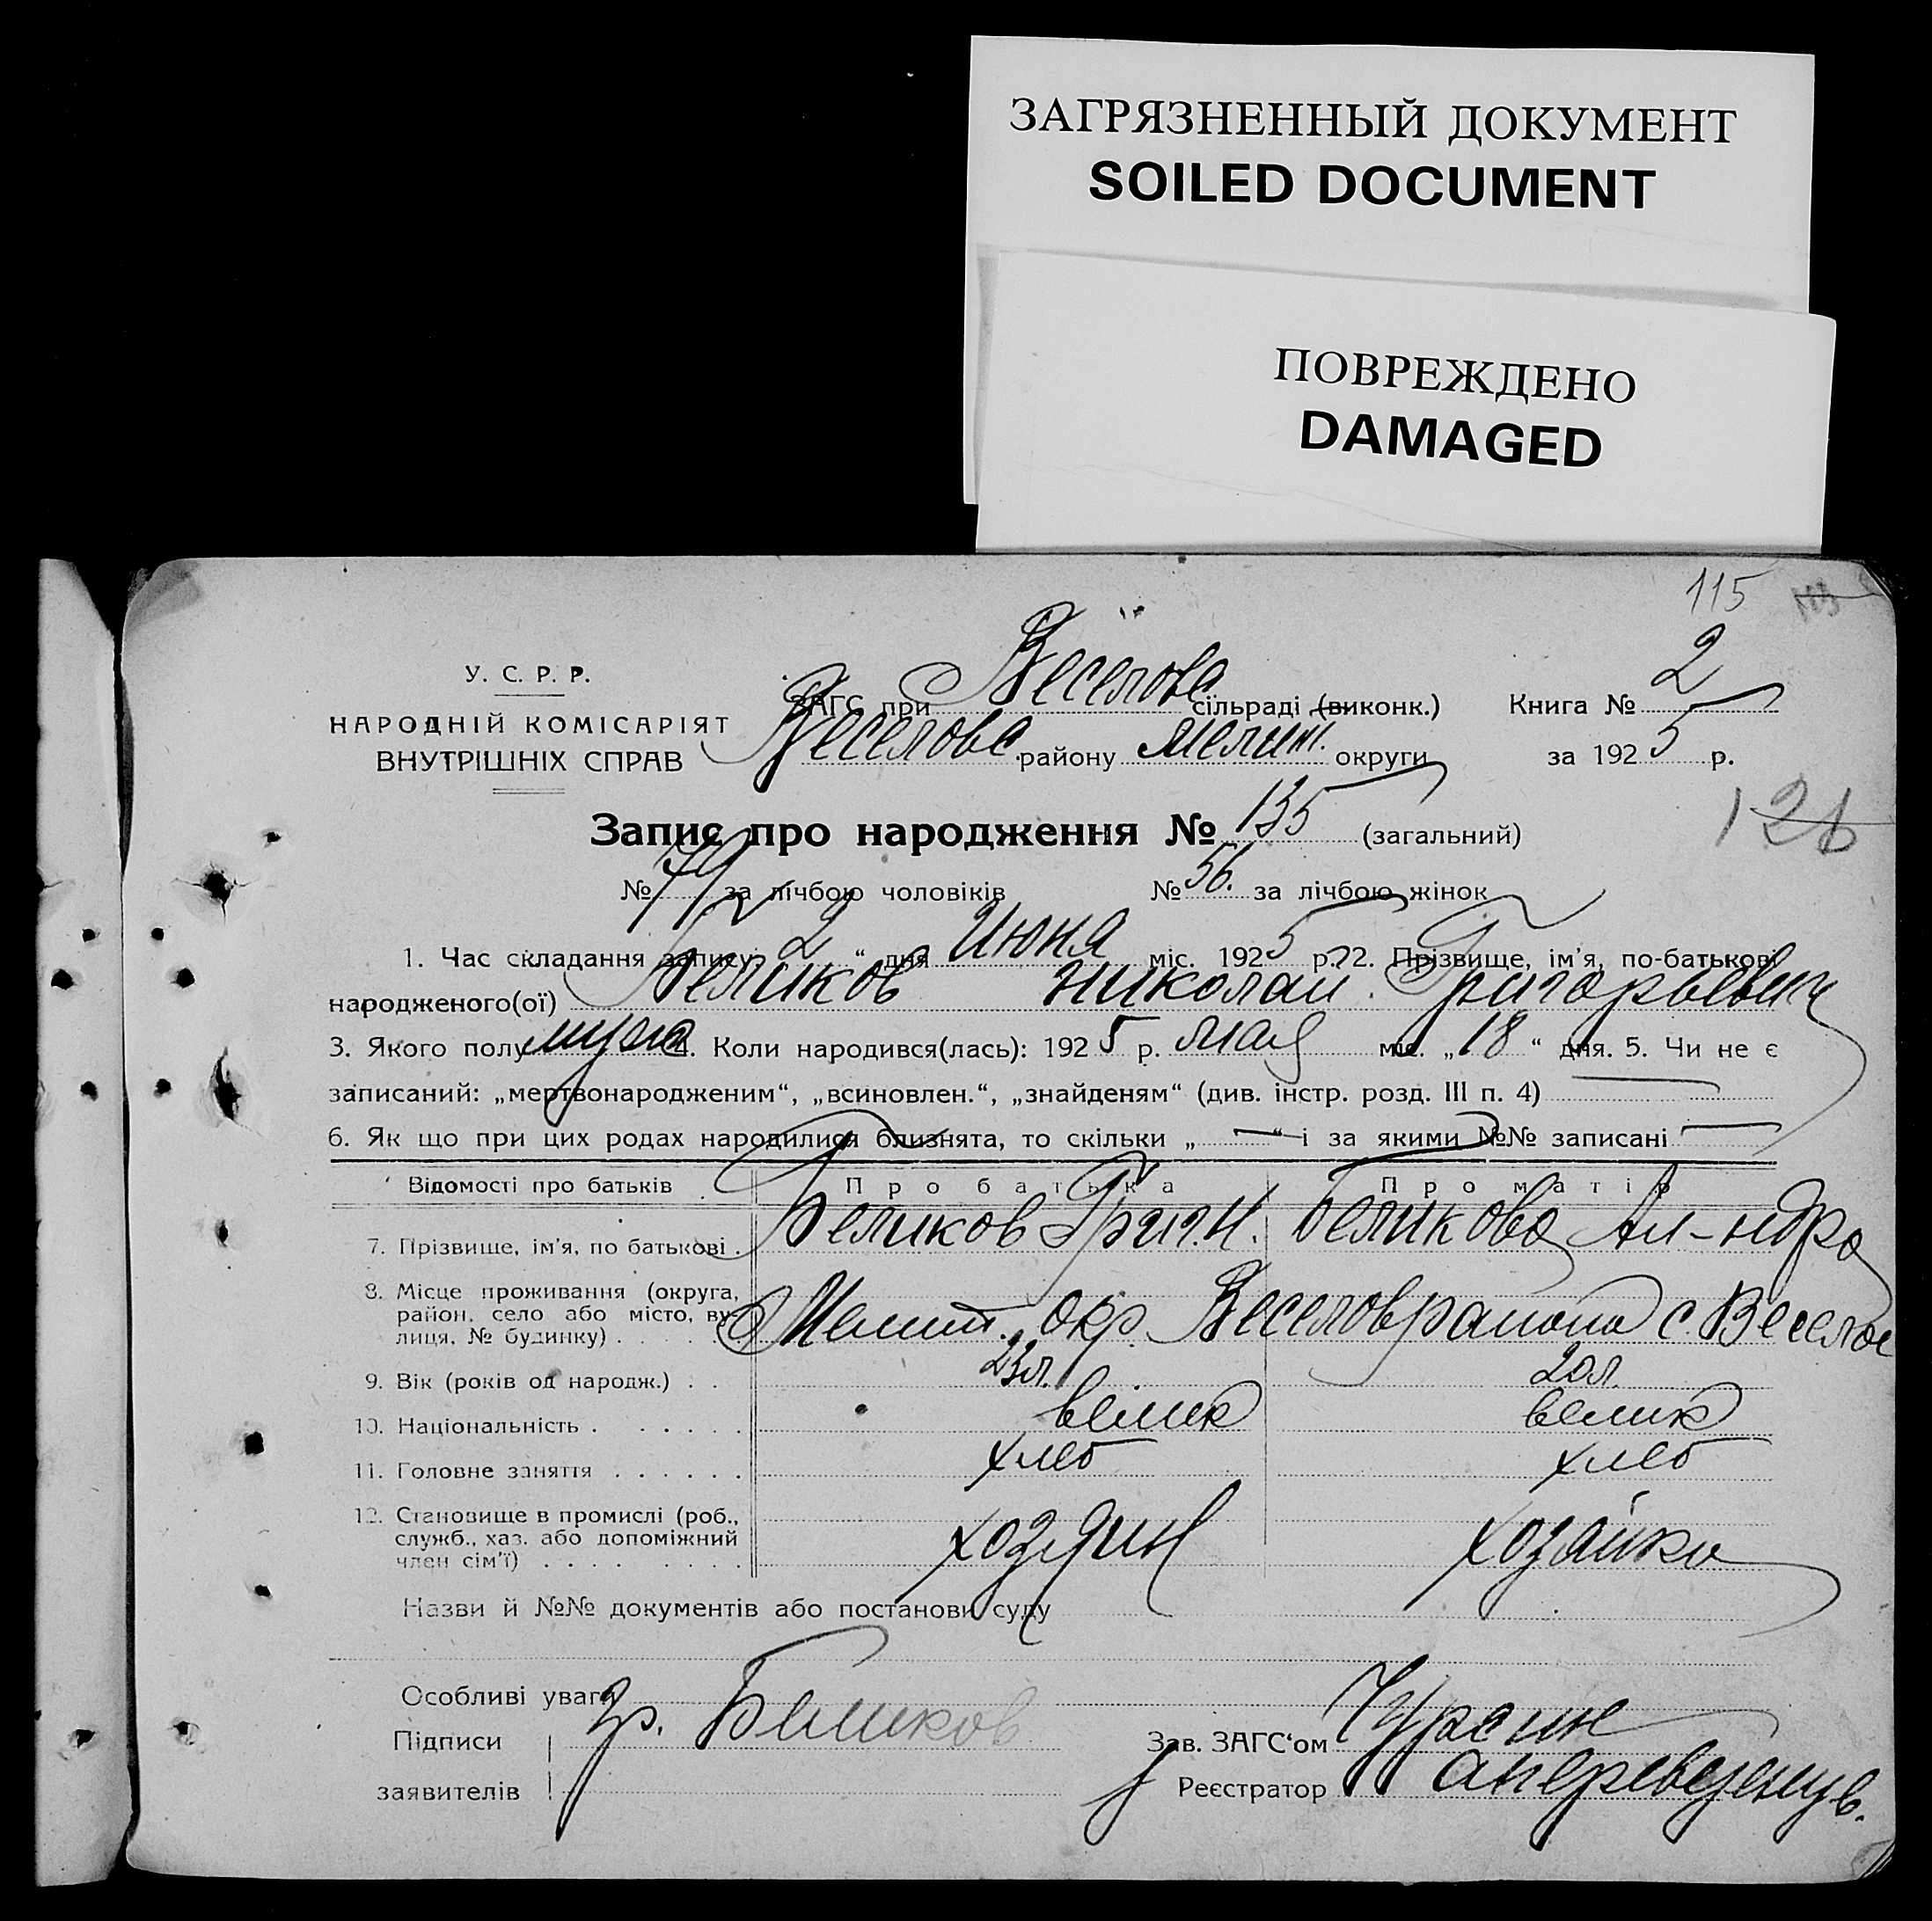 ЗАГРЯЗНЕННЫЙ ДОКУМЕНТ
SOILED DOCUMENT
ПОВРЕЖДЕНО
DAMAGED
115
У. С. Р. Р.
НАРОДНІЙ КОМІСАРІЯТ
ВНУТРІШНІХ СПРАВ
ЗАГС при Веселовс сільраді (виконк.)
Веселовс. району Мелит. округи
Книга № 2
за 1925 р.
126
Запис про народження № 135 (загальний)
№ 79 за лічбою чоловіків № 56. за лічбою жінок
1. Час складання запису 2 “ дня Июня міс. 1925 р. 2. Прізвище, ім’я, по-батькові
народженого(ої) Беликов Николай Григорьевич
3. Якого полу муж 4. Коли народився(лась): 1925 р. Мая міс. „18“ дня. 5. Чи не є
записаний: „мертвонародженим“, „всиновлен.“, „знайденям“ (див. інстр. розд. III п. 4) —
6. Як що при цих родах народилися близнята, то скільки „ — “ і за якими №№ записані —
Відомості про батьків Про батька Про матір
7. Прізвище, ім’я, по батькові . Беликов Григ. Н. Беликова Ал-ндра
8. Місце проживання (округа,
район, село або місто, ву-
лиця, № будинку) . Мелит. окр. Веселов района с. Веселое
9. Вік (років од народж.) . . 23 л. 20 л.
10. Національність . . . . . . велик велик
11. Головне заняття . . . . . . хлеб хлеб
12. Становище в промислі (роб.,
служб., хаз. або допоміжний
член сім’ї) . . . . . . . . хозяин хозяйка
Назви й №№ документів або постанови суду
Особливі уваги
Підписи гр. Беликов Зав. ЗАГС‘ом
заявителів Реєстратор